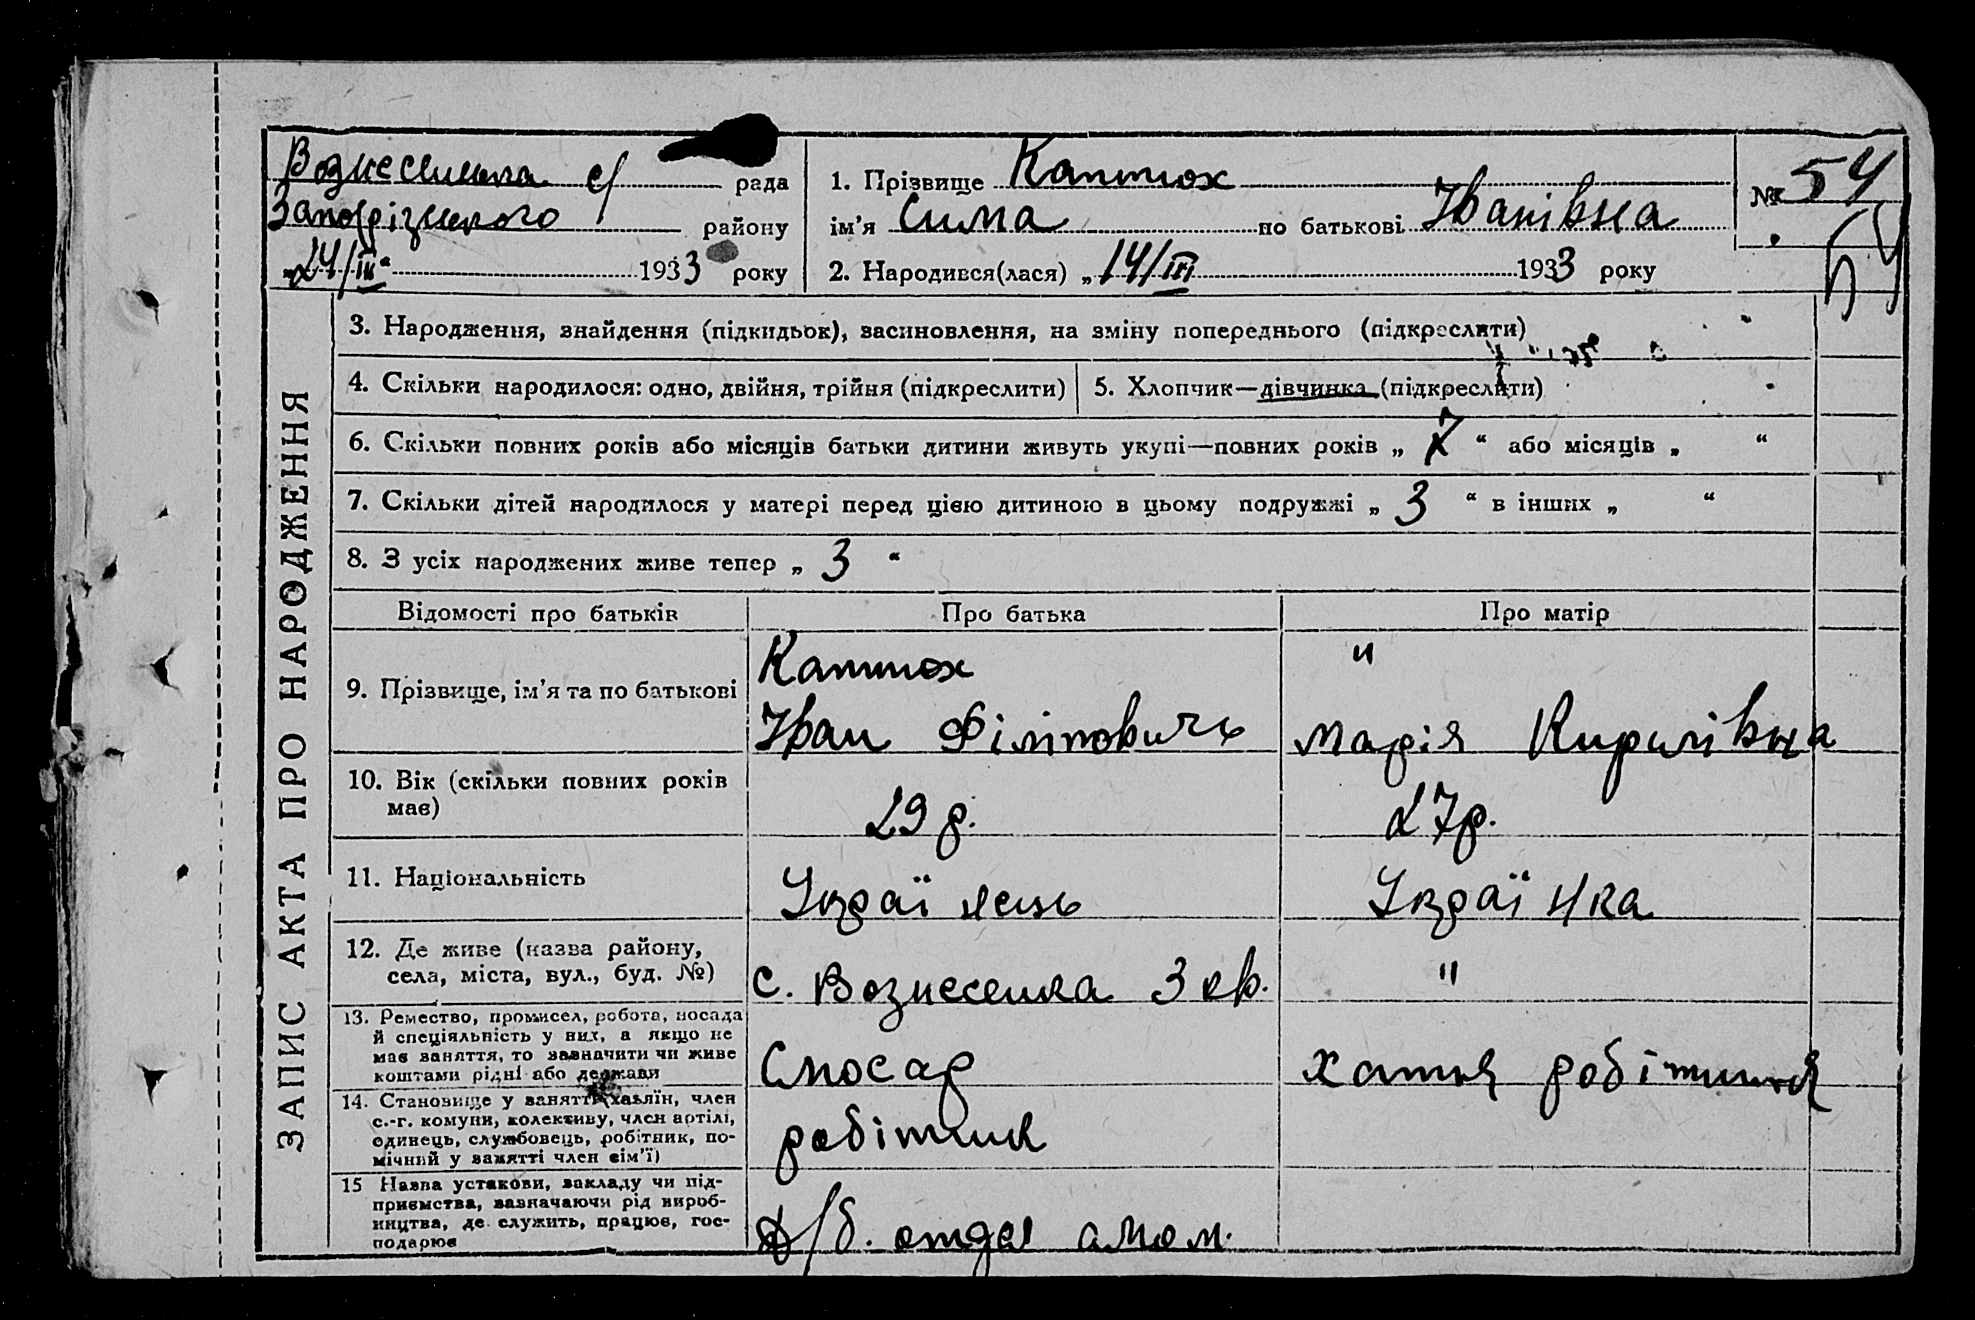 Вознесенська с/ рада
Запорізького району
„24/III“ 1933 року
1. Прізвище Каптюх
ім’я Сима по батькові Іванівна
2. Народився(лася) „14/III 1933 року
№ 54
54
ЗАПИС АКТА ПРО НАРОДЖЕННЯ
3. Народження, знайдення (підкидьок), засиновлення, на зміну попереднього (підкреслити)
4. Скільки народилося: одно, двійня, трійня (підкреслити)
5. Хлопчик—дівчинка (підкреслити)
6. Скільки повних років або місяців батьки дитини живуть укупі—повних років „ 7 “ або місяців „ “
7. Скільки дітей народилося у матері перед цією дитиною в цьому подружжі „ 3 “ в інших „ “
8. З усіх народжених живе тепер „ 3 “
Відомості про батьків
Про батька
Про матір
9. Прізвище, ім’я та по батькові
Каптюх
Іван Філіповичь
"
Марія Кирилівна
10. Вік (скільки повних років
має)
29 р.
27р.
11. Національність
Українець
Українка
12. Де живе (назва району,
села, міста, вул., буд. №)
с. Вознесенка 3 кв.
"
13. Ремество, промисел, робота, посада
й спеціяльність у них, а якщо не
має заняття, то зазначити чи живе
коштами рідні або держави
Слюсар
хатня робітниця
14. Становище у занятті (хазяїн, член
с.-г. комуни, колективу, член артілі,
одинець, службовець, робітник, по-
мічний у занятті член сім’ї)
робітник
15 Назва установи, закладу чи під-
приємства, зазначаючи рід вироб-
ництва, де служить, працює, гос-
подарює
Д/б. отдел алюм.